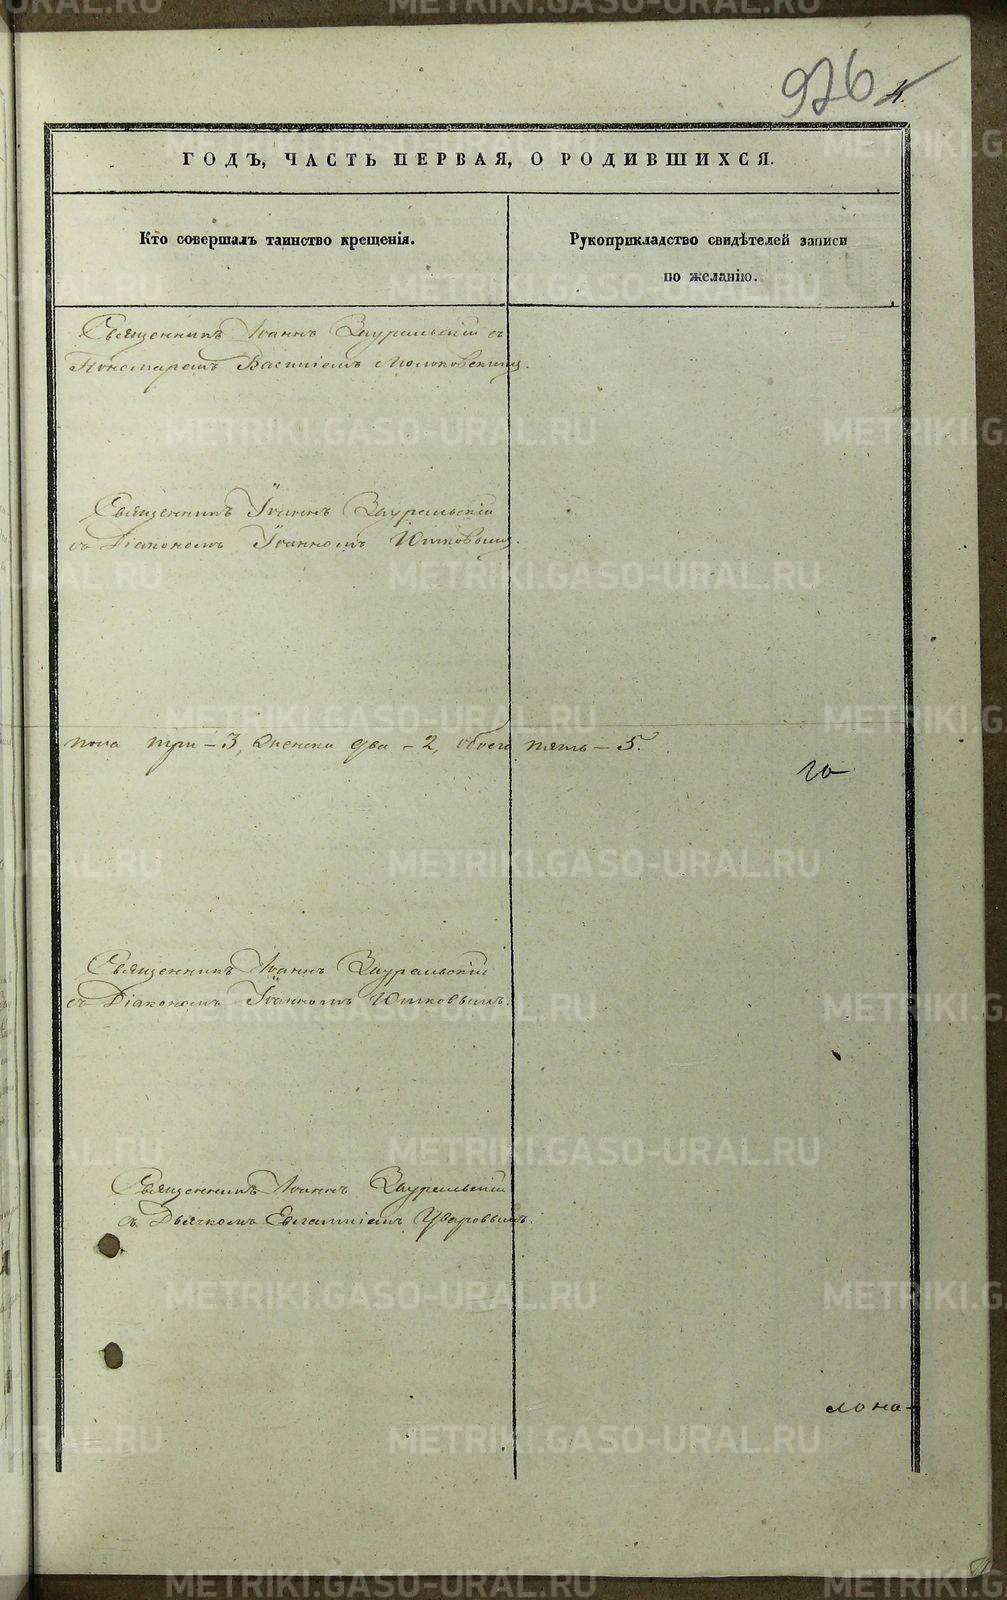 926
4.
ГОДЪ, ЧАСТЬ ПЕРВАЯ, О РОДИВШИХСЯ.
Кто совершалъ таинство крещенія.
Рукоприкладство свидѣтелей записи
по желанію.
Священникъ Іоаннъ Зауральскій съ
Пономаремъ Василіемъ
Священникъ Іоаннъ Зауральскій
съ Діакономъ Іоанномъ
пола три – 3, женска два – 2, обоего пять – 5.
Священникъ Іоаннъ Зауральскій
съ Діакономъ Іоанномъ
Священникъ Іоаннъ Зауральскій
съ Дьячкомъ Евлампіемъ Уваровымъ.
METRIKI.GASO-URAL.RU